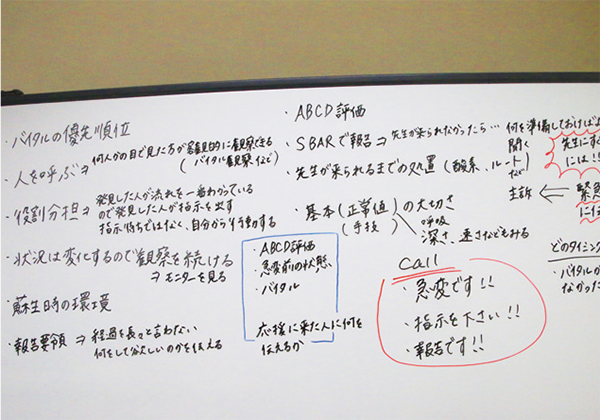 ・バイタルの優先順位
・人を呼ぶ⇒何人かの目で見た方が客観的に観察できる
(バイタル観察など)
・役割分担⇒発見した人が流れを一番わかっている
ので発見した人が指示を出す
指示待ちではなく、自分から行動する
・状況は変化するので観察を続ける
⇒モニターを見る
・蘇生時の環境
・報告要領⇒経過を長々と言わない
何をして欲しいのかを伝える
・ABCD評価
・急変前の状態
・バイタル
応援に来た人に何を
伝えるか
・ABCD評価
・SBARで報告⇒先生が来られなかったら…何を準備しておけばよ
聞く
・先生が来られるまでの処置(酸素、ルート
など)
・基本(正常値)の大切さ
(手技)
呼吸
深さ、速さなどもみる
call
・急変です!!
・指示を下さい!!
・報告です!!
先生にす
には!!
主訴⇐緊急
に
どのタイミング
・バイタルが
なかった